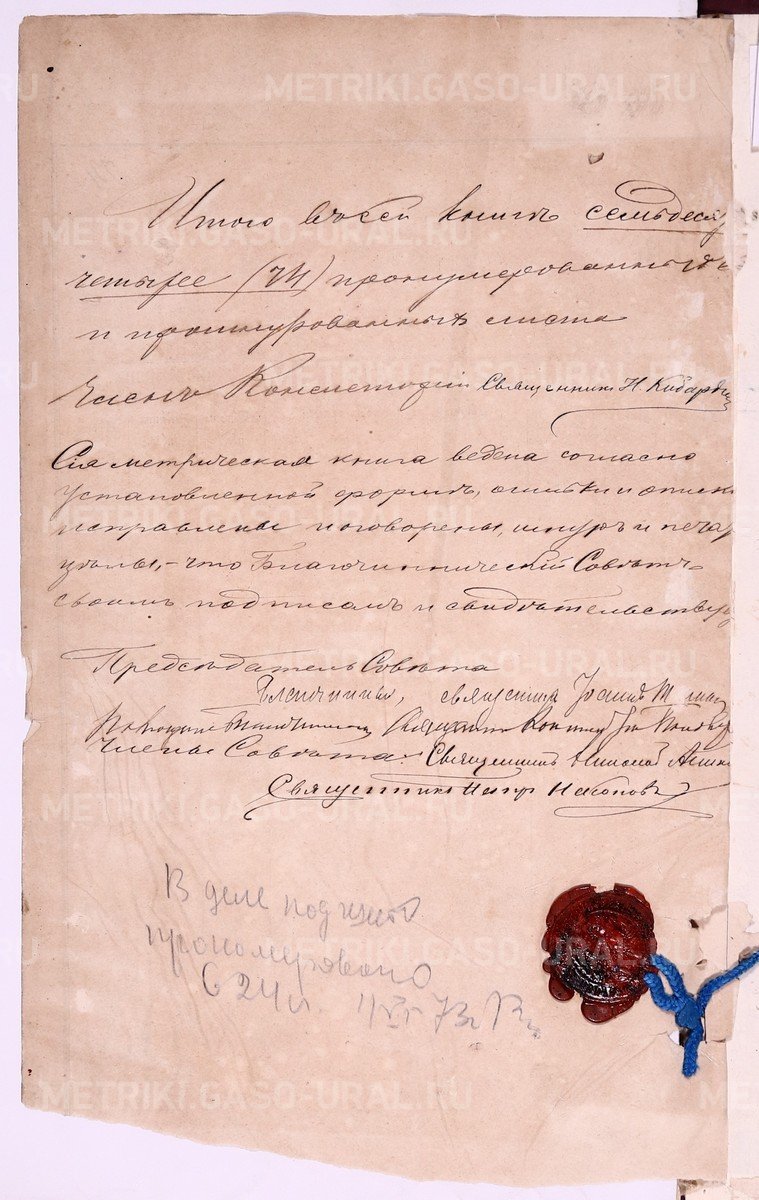 METRIKI.GASO-URAL.RU
Итого въ сей книгѣ семьдеся
четыре (74) пронумерованныхъ
и прошнурованныхъ листа
Членъ Консисторіи Священникъ Н.
Сія метрическая книга ведена согласно
установленной формѣ, ошибки и описки
исправлены и оговорены, шнуръ и печа
цѣлы, - что Благочинническій Совѣтъ
своимъ подписомъ и свидѣтельству
Предсѣдатель Совѣта
Благочинный, священникъ Іоаннъ
Священникъ
Члены Совѣта: Священникъ Николай
Священникъ Петръ
В деле подшито
пронумеровано
624 л.